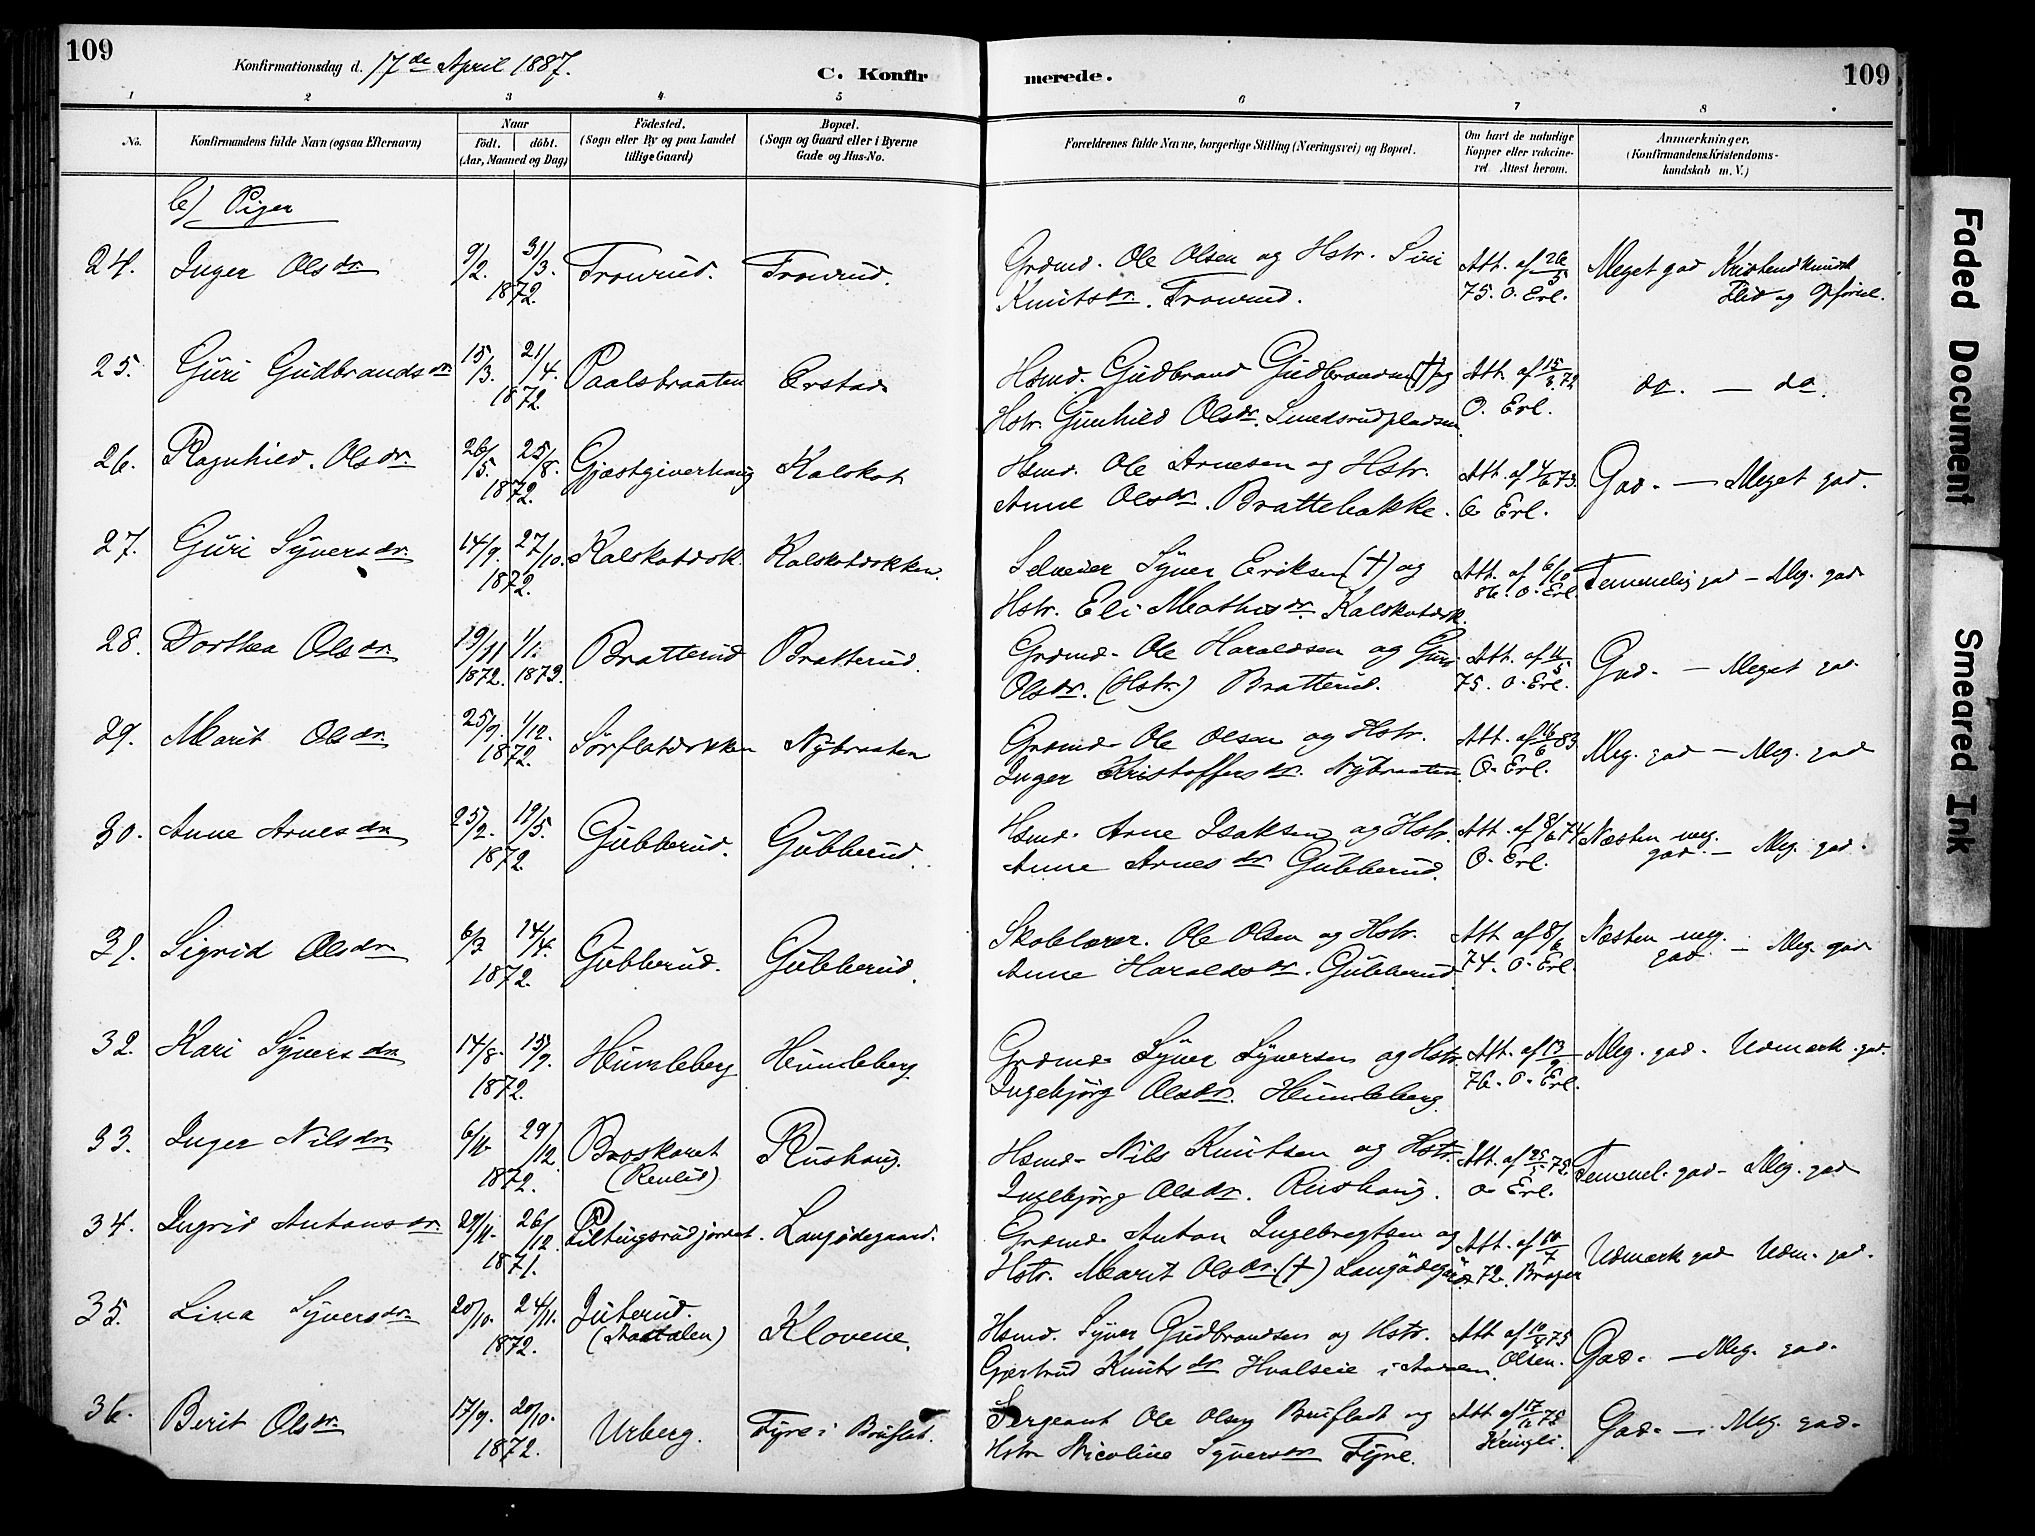 109
Konfirmationsdag d. 17de April 1887.
C. Konfir
merede.
109
1 2 3 4 5 6 7 8
No.
Konfirmandens fulde Navn (ogsaa Efternavn)
Naar
født. døbt.
(Aar, Maaned og Dag)
Födested.
(Sogn eller By og paa Landet
tillige Gaard)
Bopæl.
(Sogn og Gaard eller i Byerne
Gade og Hus-No.
Forældrenes fulde Navne, borgerlige Stilling (Næringsvei) og Bopæl.
Om havt de naturlige
Kopper eller vakcine-
ret. Attest herom.
Anmærkninger,
(Konfirmandens Kristendoms-
kundskab m. V.)
b) Piger
24. Inger Olsdr. 9/2. 31/3. 1872. Tronrud. Tronrud. Grdmd. Ole Olsen og Hstr. Siri
Knutsdr. Tronrud. Att. af 26/5 75. O. Erl. Meget god Kristendkundsk
Flid og Opførsel.
25. Guri Gudbrandsdr. 15/3. 21/4. 1872. Paalsbraaten Ørstad Hsmd. Gudbrand Gudbrandsen (†) og
Hstr. Gunhild Olsdr. Smedsrudpladsen. Att. af 15/3. 72 O. Erl. do. — do.
26. Ragnhild. Olsdr. 26/5. 25/8. 1872. Gjæstgiverhaug Kalskot Hsmd. Ole Arnesen og Hstr.
Anne Olsdr. Brattebakke. Att. af 4/6 73. O Erl. God. — Meget god.
27. Guri Syversdr. 14/9. 27/10. 1872. Kalskotødk. Kalskotødkken. Selveier Syver Eriksen (†) og
Hstr. Eli Mathisdr. Kalskotødk. Att. af 6/10 86. O. Erl. Temmelig god — Meg. god
28. Dorthea Olsdr. 19/11 1872. 1/1. 1873. Bratterud Bratterud. Grdmd. Ole Haraldsen og Guri
Olsdr. (Hstr.) Bratterud. Att. af 11/5 75. O. Erl. God. — Meget god.
29. Marit Olsdr. 25/9. 1/12. 1872. Sørflatødkken Nybraaten Grdmd. Ole Olsen og Hstr.
Inger Kristoffersdr. Nybraaten. Att. af 16/6 83. O. Erl. Meg. god — Meg. god
30. Anne Arnesdr. 25/2. 19/5. 1872. Gubberud. Gubberud. Hsmd. Arne Isaksen og Hstr.
Anne Arnesdr Gubberud. Att. af 8/6 74. O. Erl. Næsten meg.
god. — Meg. god.
31. Sigrid Olsdr. 6/3 14/4. 1872. Gubberud. Gubberud. Skolelærer. Ole Olsen og Hstr.
Anne Haraldsdr. Gubberud. Att af 8/6 74. O. Erl. Næsten meg.
god. — Meg. god
32. Kari Syversdr. 14/8. 15/9. 1872. Humleberg Humleberg Grdmd. Syver Syversen og Hstr.
Ingebjörg Olsdr. Humleberg. Att. af 13/9 76. O. Erl. Meg. god. Udmærk. god.
33. Inger Nilsdr. 6/11 29/12 1872. Broskaret
(Renlid) Rushaug. Hsmd. Nils Knutsen og Hstr.
Ingebjörg Olsdr. Rushaug. Att. af 25/5 75. O. Erl. Temmel. god — Meg. god
34. Ingrid Antonsdr. 29/11. 26/12. 1871. Piltingsrudjordet. Langødegaard. Grdmd. Anton Ingebregtsen og
Hstr. Marit Olsdr. (†) Langødegård. Att. af 10/7 72. Brager Udmærk god Udm. god.
35. Lina Syversdr. 20/10. 24/11. 1872. Juterud.
(Aastalen) Klovene. Hsmd. Syver Gudbrandsen og Hstr.
Gjertrud Knutsdr Hvalseie i Aadalen. Att af 10/4 75 Olsen. God. — Meg. god.
36. Berit Olsdr. 17/9. 20/10. 1872. Urberg. Fyre i Bruflat. Sergeant Ole Olsen Bruflat og
Hstr Nicoline Syversdr Fyre. Att. af 17/12 75 Kringli. God. — Meg. god.
Faded Document
Smeared Ink